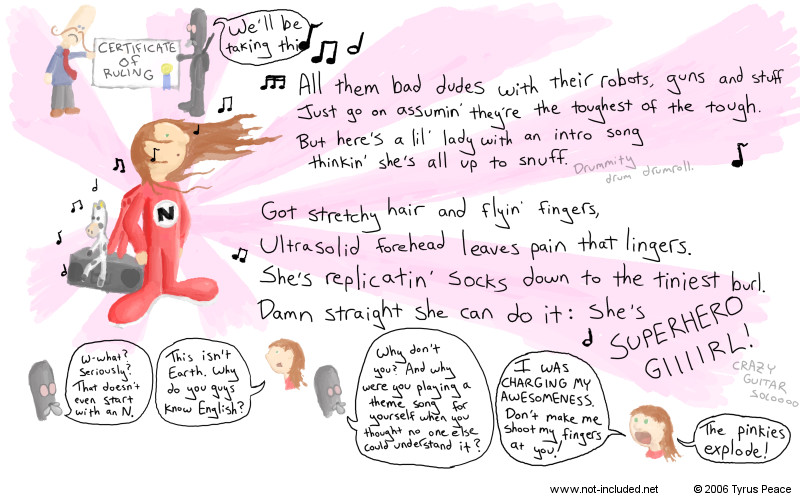 We'll be
taking this
CERTIFICATE
OF
RULING
All them bad dudes with their robots, guns and stuff
Just go on assumin' they're the toughest of the tough.
But here's a lil' lady with an intro song
thinkin' she's all up to snuff.
Drummity
drum drumroll.
N
Got stretchy hair and flyin' fingers,
Ultrasolid forehead leaves pain that lingers.
She's replicatin' socks down to the tiniest burl.
Damn straight she can do it: She's
SUPERHERO
GIIIIRL!
CRAZY
GUITAR
SOLOOOO
W-what?
Seriously?
That doesn't
even start
with an N.
This isn't
Earth. Why
do you guys
know English?
Why don't
you? And why
were you playing a
theme song for
yourself when you
thought no one else
could understand it?
I WAS
CHARGING MY
AWESOMENESS.
Don't make me
shoot my fingers
at you!
The pinkies
explode!
www.not-included.net © 2006 Tyrus Peace